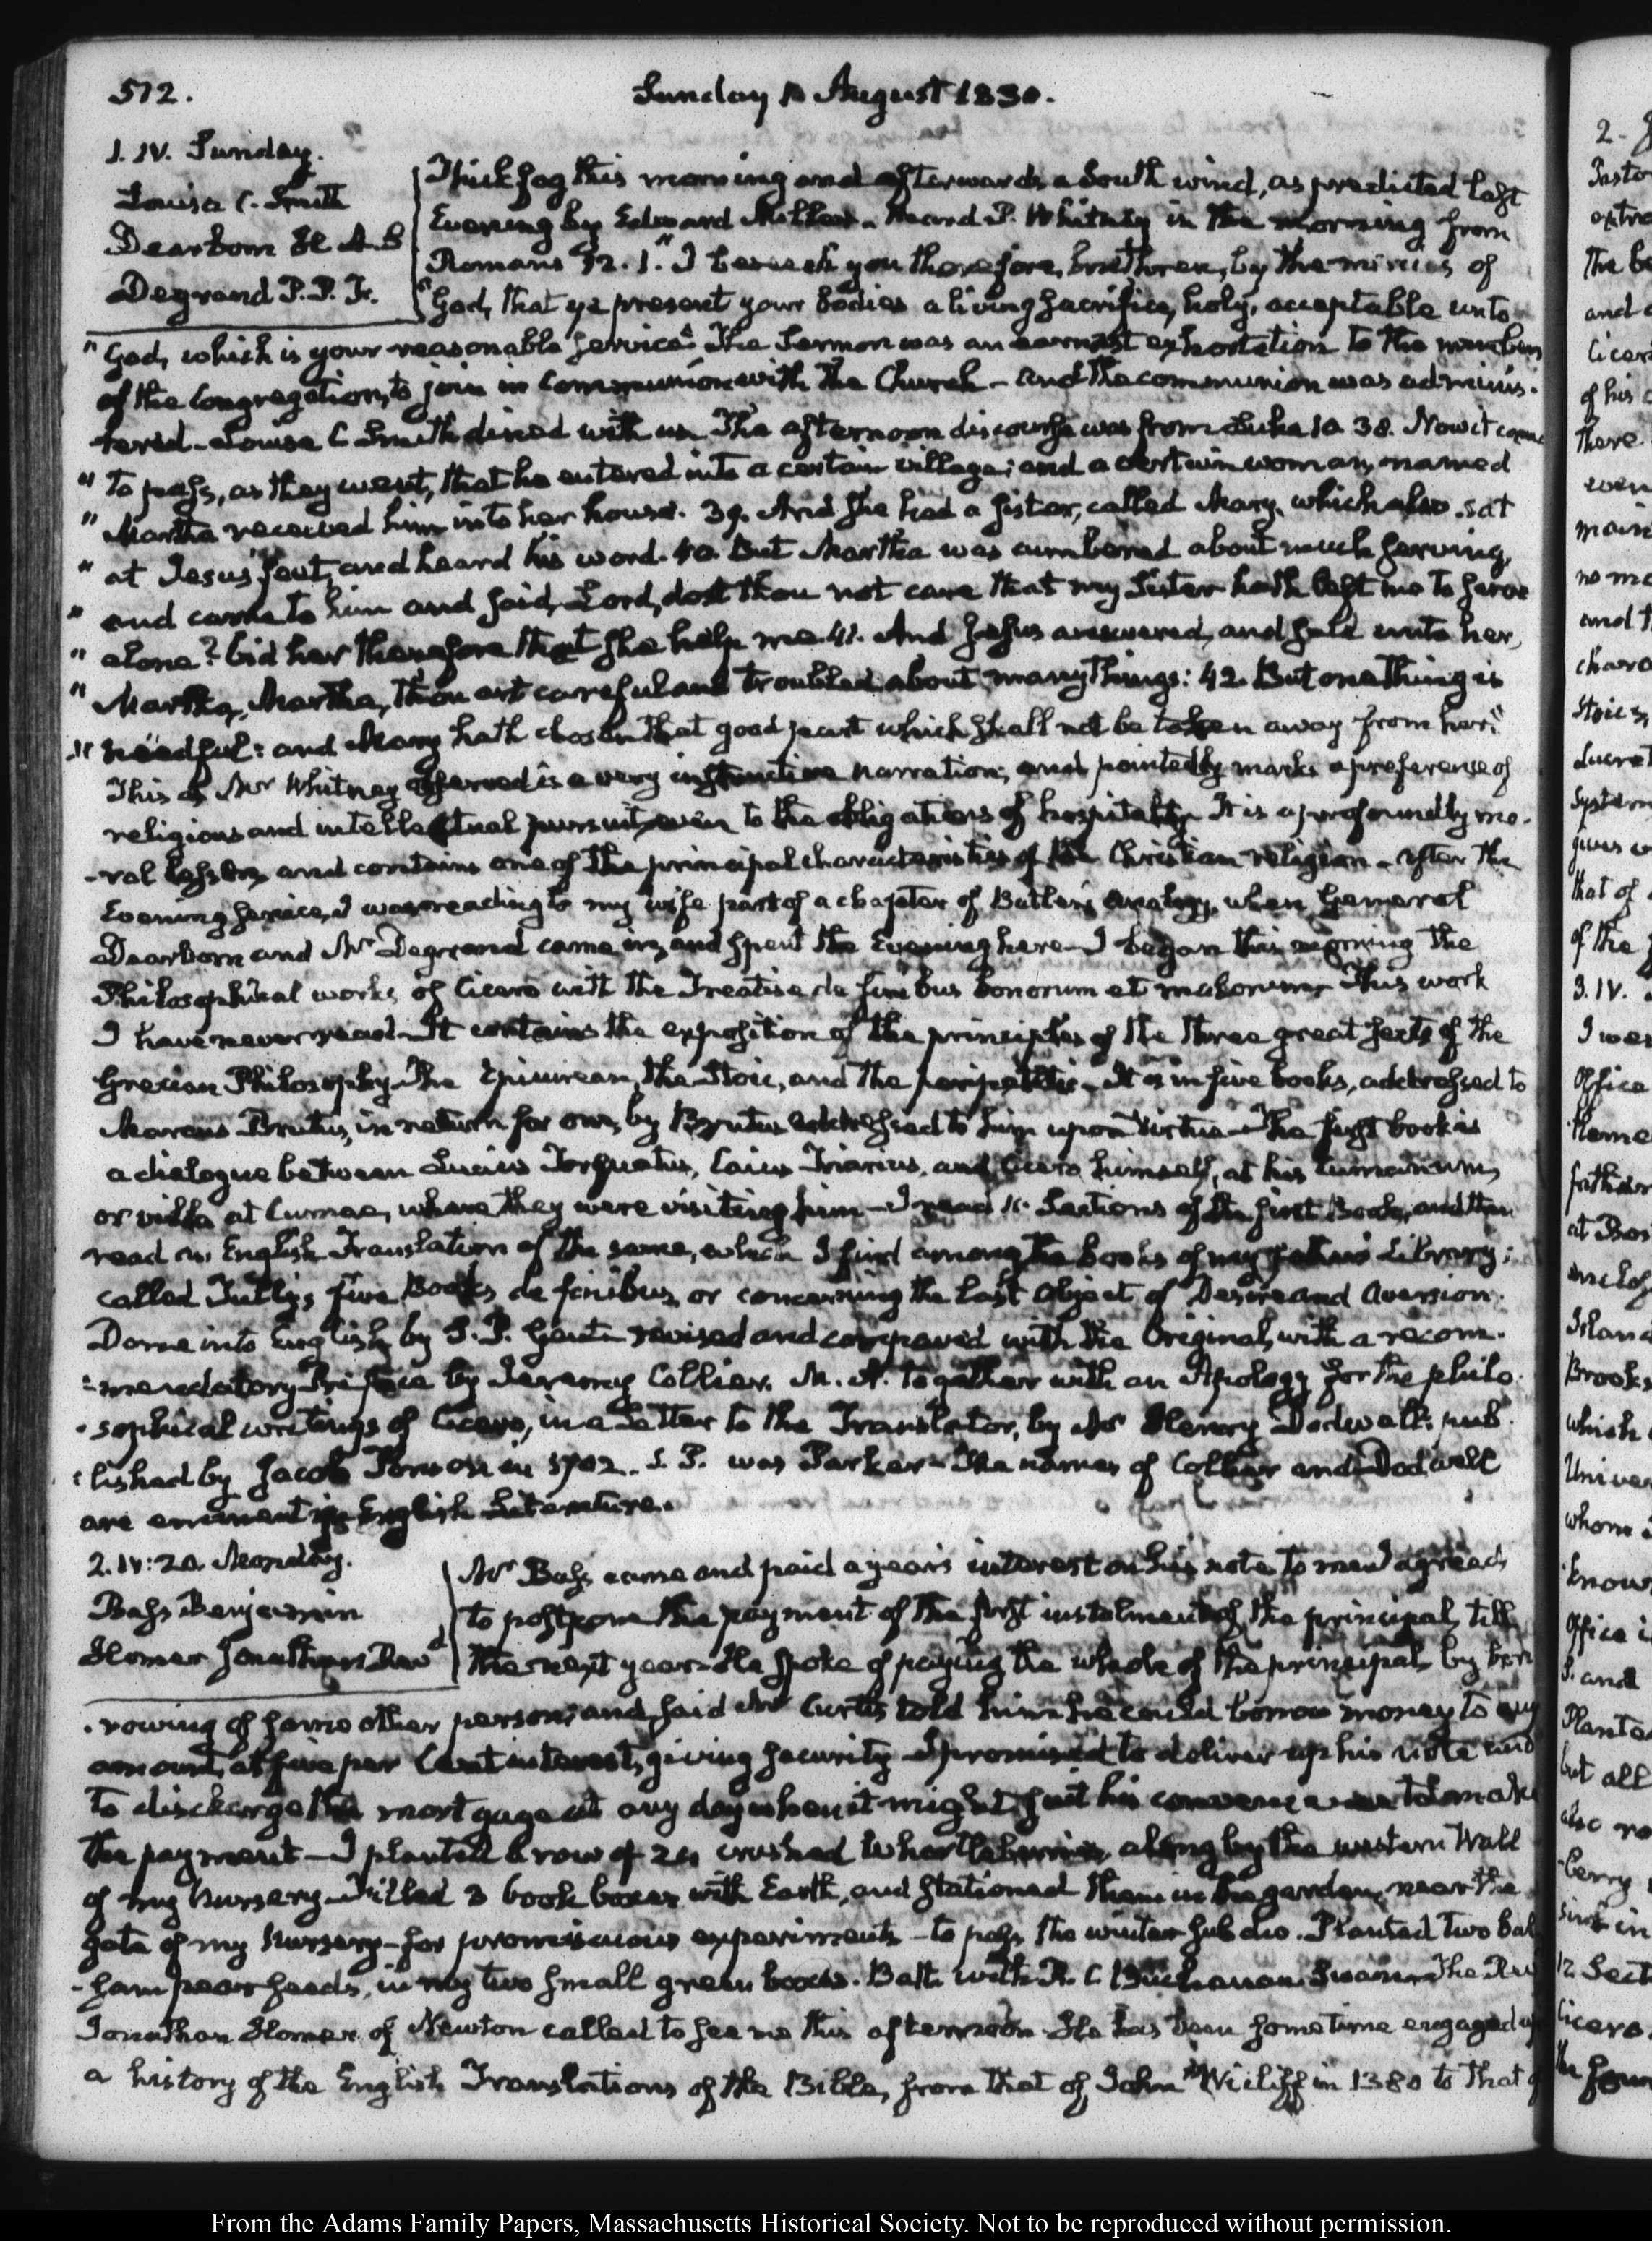 512.
Sunday 1. August 1830.
1. IV. Sunday.
Louisa C. Smith
Dearborn H. A. S
Degrand P. P. F.
Thick fog this morning and afterwards a South wind, as predicted last
Evening by Edward Miller. Heard P. Whitney in the morning from
Romans 12. 1. "I beseech you therefore, brethren, by the mercies of
"God, that ye present your bodies a living sacrifice, holy, acceptable unto
"God, which is your reasonable service." The Sermon was an earnest exhortation to the members
of the Congregation, to join in Communion with the Church – and the communion was adminis-
tered. Louisa C Smith dined with us. The afternoon discourse was from Luke 10. 38. Now it came
"to pass, as they went, that he entered into a certain village; and a certain woman, named
"Martha received him into her house. 39. And she had a sister, called Mary, which also sat
"at Jesus' feet, and heard his word. 40. But Martha was cumbered about much serving,
"and came to him and said, Lord, dost thou not care that my Sister hath left me to serve
"alone? bid her therefore that she help me. 41. And Jesus answered, and said unto her,
"Martha, Martha, thou art careful and troubled about many things: 42. But one thing is
"needful: and Mary hath chosen that good part which shall not be taken away from her."
This as Mr Whitney observed is a very instructive narration; and pointedly marks a preference of
religious and intellectual pursuit, even to the obligations of hospitality. It is a profoundly mo-
-ral lesson, and contains one of the principal characteristics of the Christian religion. After the
Evening service, I was reading to my wife part of a chapter of Butler's Analogy, when General
Dearborn and Mr Degrand came in, and spent the Evening here – I began this morning the
Philosophical works of Cicero with the Treatise de finibus bonorum et malorum. This work
I have never read. It contains the exposition of the principles of the three great sects of the
Grecian Philosophy. The Epicurean, the Stoic, and the peripatetic. It is in five books, addressed to
Marcus Brutus, in return for one, by Brutus addressed to him upon Virtue – The first book is
a dialogue between Lucius Torquatus, Caius Triarius, and Cicero himself, at his Cumanum,
or villa at Cumae, where they were visiting him – I read Sections of the first Book, and then
read an English Translation of the same, which I find among the books of my father's Library;
called Tully's five Books de finibus, or concerning the last Object of Desire and Aversion.
Done into English by S. P. Gent. revised and compared with the Original, with a recom-
-mendatory Preface by Jeremy Collier. M. A. together with an Apology for the philo-
-sophical writings of Cicero, in a Letter to the Translator, by Mr Henry Dodwell: pub-
-lished by Jacob Tonson in 1702. S. P. was Parker. The names of Collier and Dodwell
are eminent in English Literature.
2. IV: 20. Monday.
Bass Benjamin
Homer Jonathan Revd
Mr Bass came and paid a year's interest on his note to me. I agreed
to postpone the payment of the first instalment of the principal, till
the next year. He spoke of paying the whole of the principal, by bor-
-rowing of some other person; and said Mr Curtis told him he could borrow money to any
amount, at five per Cent interest, giving security. I promised to deliver up his note and
to discharge the mortgage at any day when it might suit his convenience to make
the payment – I planted a row of 24 crushed Whortleberries, along by the western Wall
of my Nursery. Filled 3 book boxes with Earth, and stationed them in the garden, near the
gate of my Nursery – for promiscuous experiments – to pass the winter sub dio. Planted two bal-
-sam pear seeds, in my two small green boxes. Bath with A. C. Buchanan. Swam. The Revd
Jonathan Homer of Newton called to see me this afternoon. He has been sometime engaged
a history of the English Translations of the Bible, from that of John Wicliff in 1380 to that
From the Adams Family Papers, Massachusetts Historical Society. Not to be reproduced without permission.